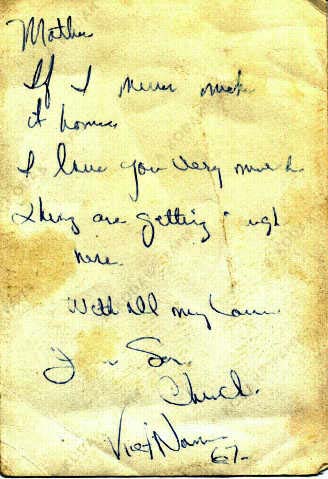 Mother
If I never make
it home.
I love you very much
Things are getting rough
here.
With all my Love
Your Son
Chuck.
Viet Nam
67-